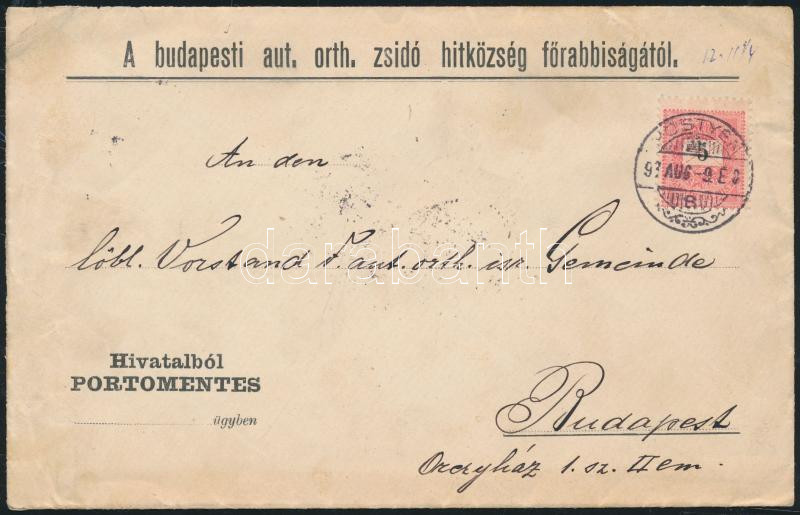 A budapesti aut. orth. zsidó hitközség főrabbiságától.
5
PÖSTYÉN
97 AUG -9.E
An den
löbl. Vorstand F. aut. orth. isr. Gemeinde
darabanth.com
Hivatalból
PORTOMENTES
ügyben
Budapest
Orczyház 1. sz. II em.